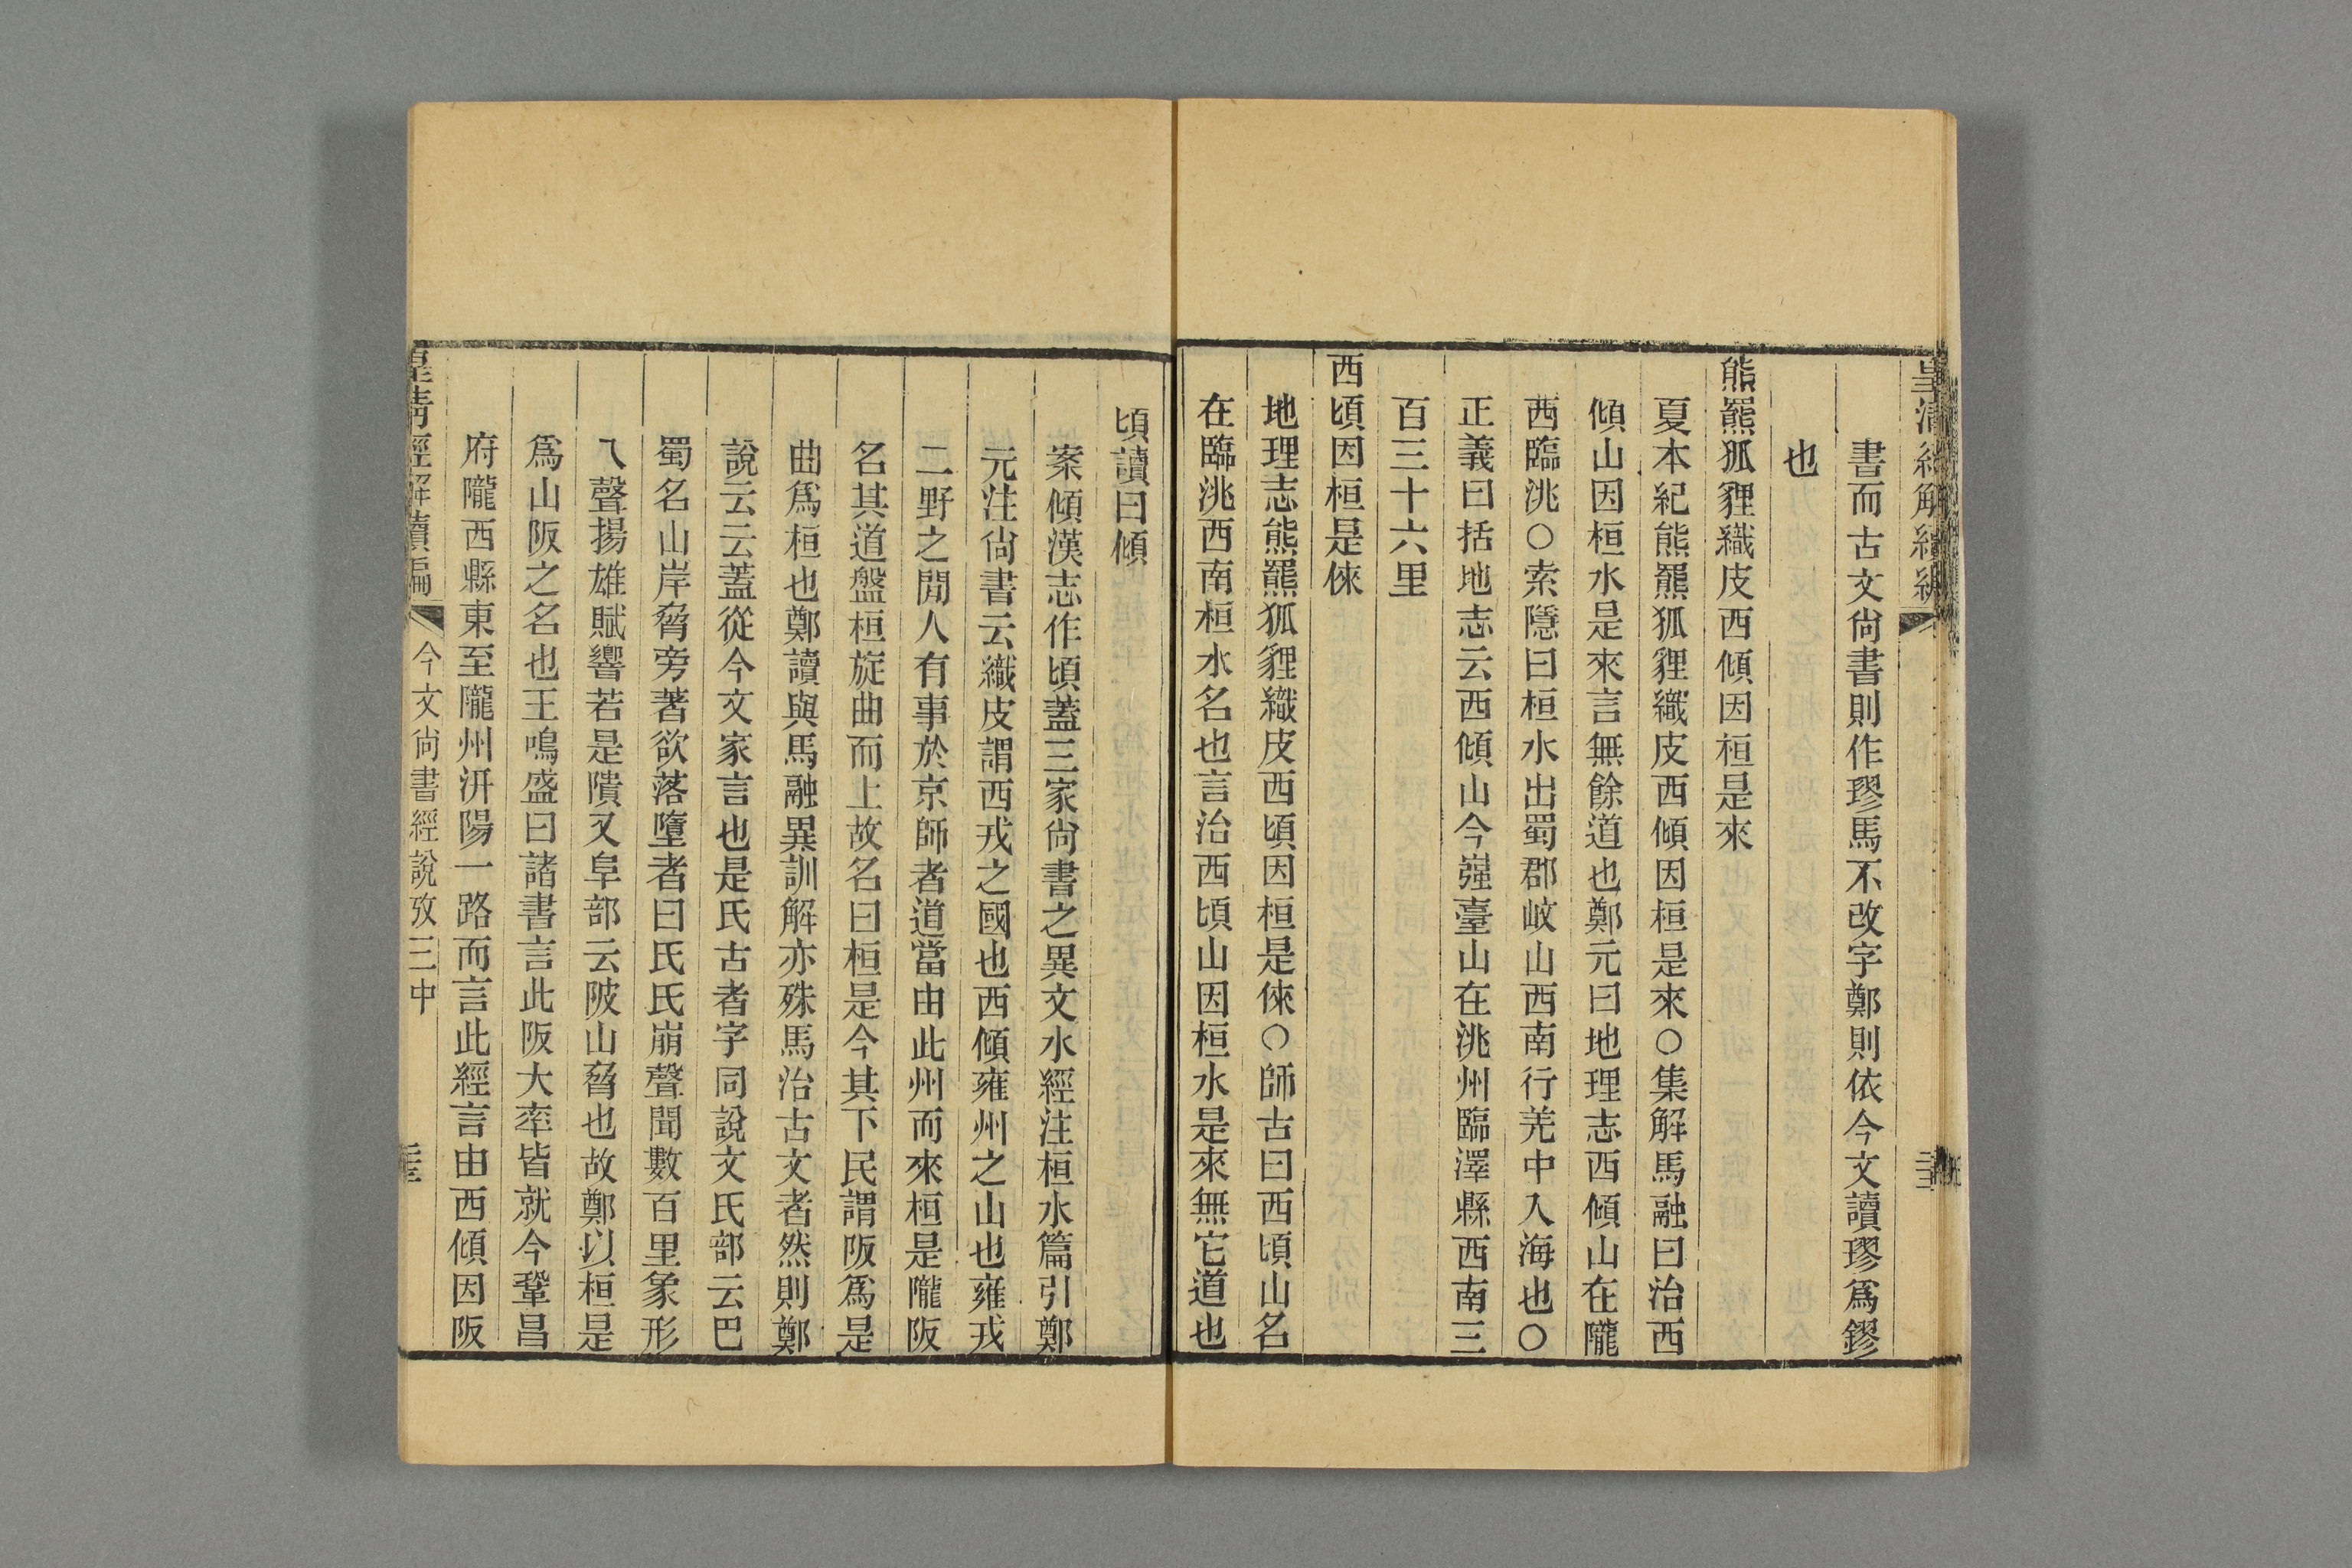 皇清經解續編
書而古文尙書則作璆馬不改字鄭則依今文讀璆爲鏐
也
熊羆狐貍織皮西傾因桓是來
夏本紀熊羆狐貍織皮西傾因桓是來○集解馬融曰治西
傾山因桓水是來言無餘道也鄭元曰地理志西傾山在隴
西臨洮○索隱曰桓水出蜀郡㟭山西南行羌中入海也○
正義曰括地志云西傾山今嵹臺山在洮州臨潭縣西南三
百三十六里
西頃因桓是倈
地理志熊羆狐貍織皮西頃因桓是倈○師古曰西頃山名
在臨洮西南桓水名也言治西頃山因桓水是來無它道也
頃讀曰傾
案傾漢志作頃蓋三家尙書之異文水經注桓水篇引鄭
元注尙書云織皮謂西戎之國也西傾雍州之山也雍戎
二野之閒人有事於京師者道當由此州而來桓是隴阪
名其道盤桓旋曲而上故名曰桓是今其下民謂阪爲是
曲爲桓也鄭讀與馬融異訓解亦殊馬治古文者然則鄭
說云云蓋從今文家言也是氏古者字同說文氏部云巴
蜀名山岸脅旁著欲落墮者曰氏氏崩聲聞數百里象形
乁聲揚雄賦響若是隤又阜部云陂山脅也故鄭以桓是
爲山阪之名也王鳴盛曰諸書言此阪大率皆就今鞏昌
府隴西縣東至隴州汧陽一路而言此經言由西傾因阪
皇淸經解續編 今文尙書經說攷三中